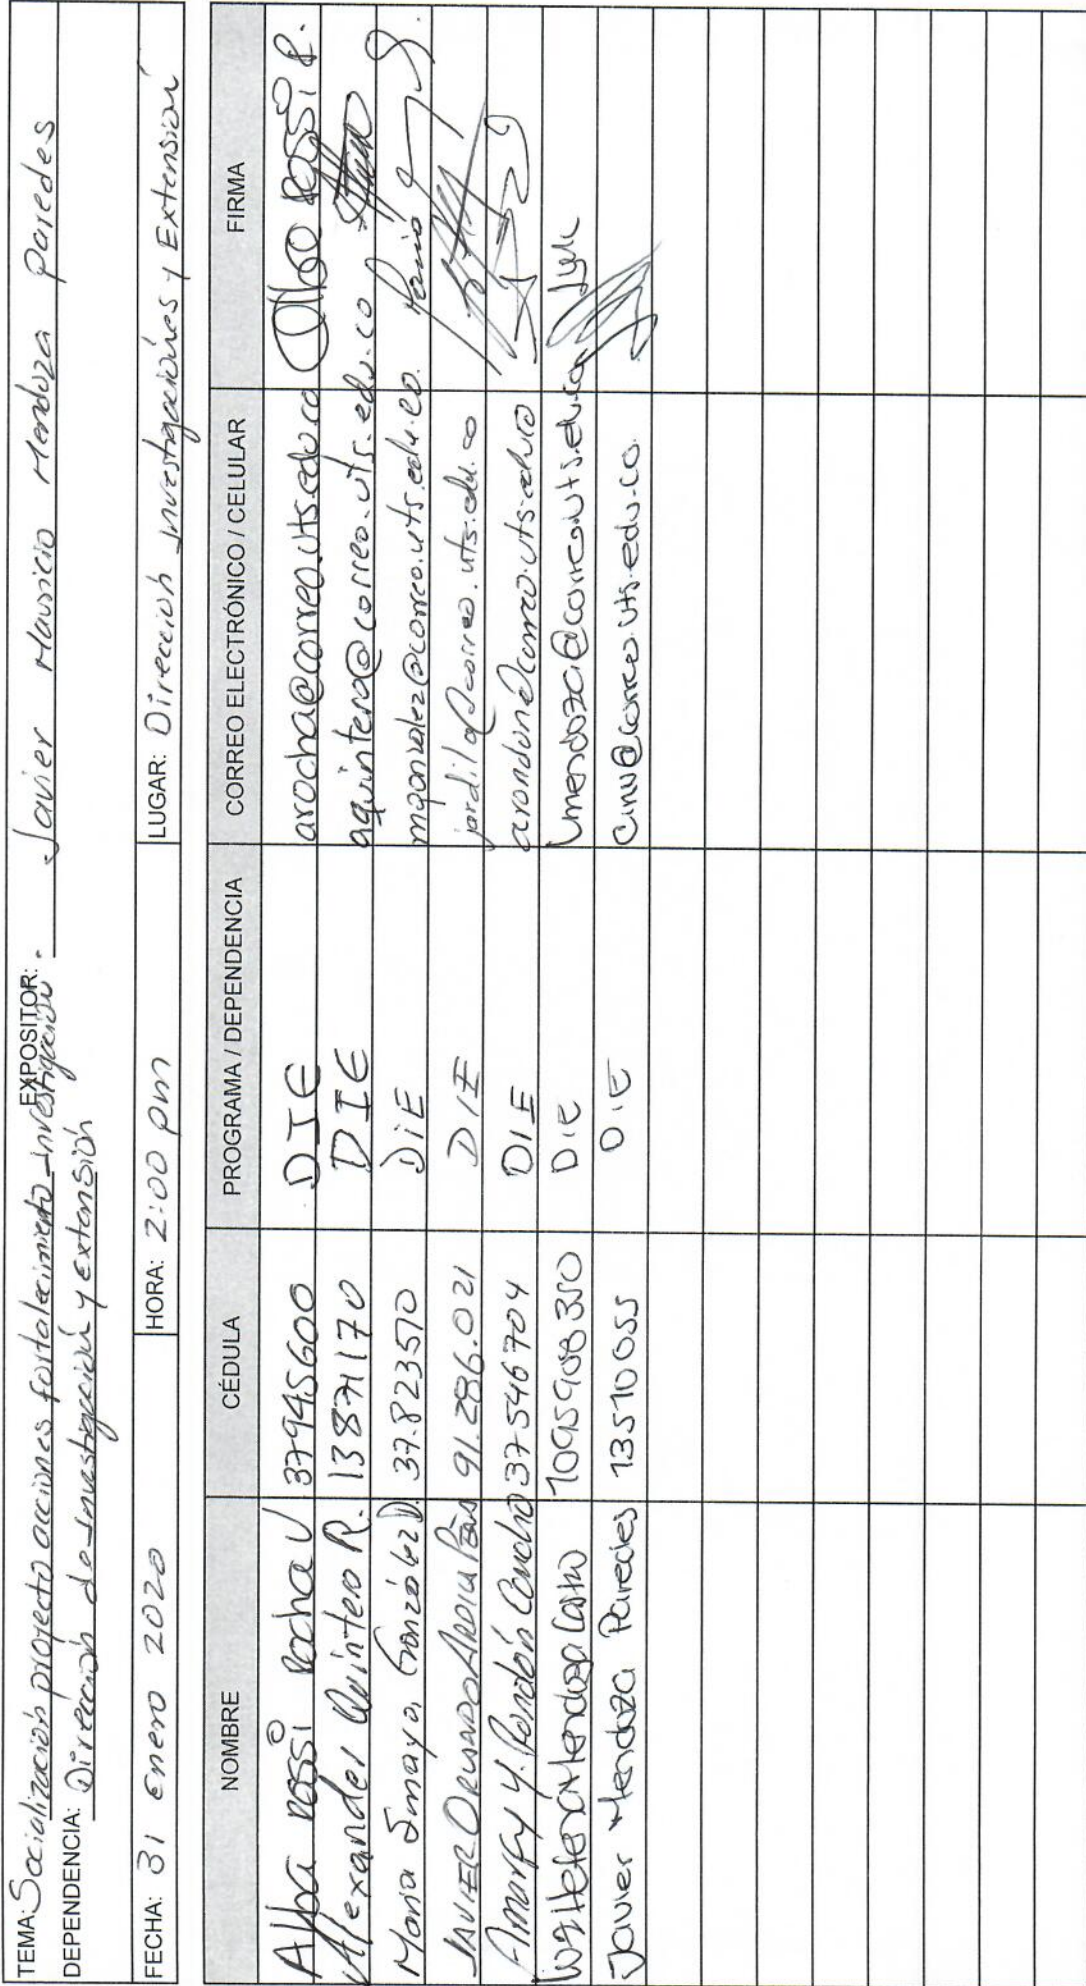 TEMA: Socialización proyecto acciones fortalecimiento investigación. EXPOSITOR: Javier Mauricio Mendoza paredes
DEPENDENCIA: Dirección de investigación y extensión
FECHA: 31 Enero 2020 HORA: 2:00 pm LUGAR: Dirección Investigaciones y Extensión
NOMBRE CÉDULA PROGRAMA / DEPENDENCIA CORREO ELECTRÓNICO / CELULAR FIRMA
Alba Rossi Rocha V 37945600 DIE arocha@correo.uts.edu.co Alba Rossi R.
Alexander Quintero R. 13871170 DIE aquintero@correo.uts.edu.co
Maria Smaya González D. 37.823570 DiE mgonzalez@correo.uts.edu.co. Maria
JAVIER ORLANDO ARDILA 91.286.021 DIE jardila@correo.uts.edu.co
Amarfy Y. Rondón 37546704 DIE arondon@correo.uts.edu.co
Mendoza Castro 1095908350 DIE lmendoza@correo.uts.edu.co
Javier Mendoza Paredes 13510055 DIE @correo.uts.edu.co.